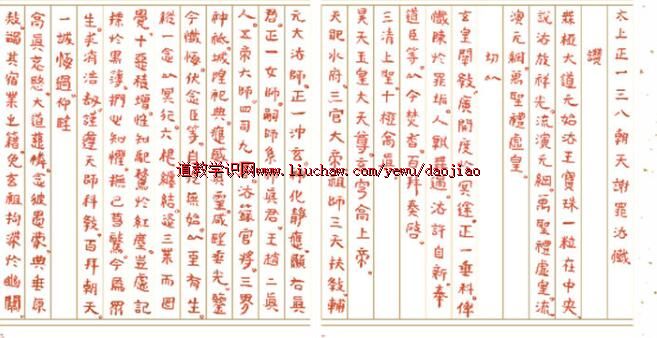 太上正一三八朝天謝罪法懺
讚
無極大道元始法王寶珠一粒在中央
說法放祥光流演元綱萬聖禮虛皇流
演元綱萬聖禮虛皇
切以
玄皇闡教廣開度於冥迷正一垂科俾
懺陳於罪垢人難過法許自新奉
道臣等以今焚香百拜奏啓
三清上聖十極高真
昊天玉皇大天尊玄穹高上帝
天地水府三官大帝祖師三天扶教輔
元大法師正一沖玄化靜應顯右真
君正一女師嗣師系真君王趙二真
人五帝大師四司九法籙官將三界
神祇城隍祀典應感靈咸垂光鑒
今懺悔伏念臣等自無始以至有生
縱一念以冥犯六根纏結造三業而因
覺十惡積增性知馳騖於紅塵豈虛記
於黑簿捫心知懼撫己驚今爲眾
生求消法謹遵天師科教百拜朝天
一誠悔過仰
高真慈愍大道慈憐念彼愚蒙典垂原
赦謁其宿業出籍免右祖拘滯於幽關
道教学识网www.liuchaw.com/yewu/daojiao